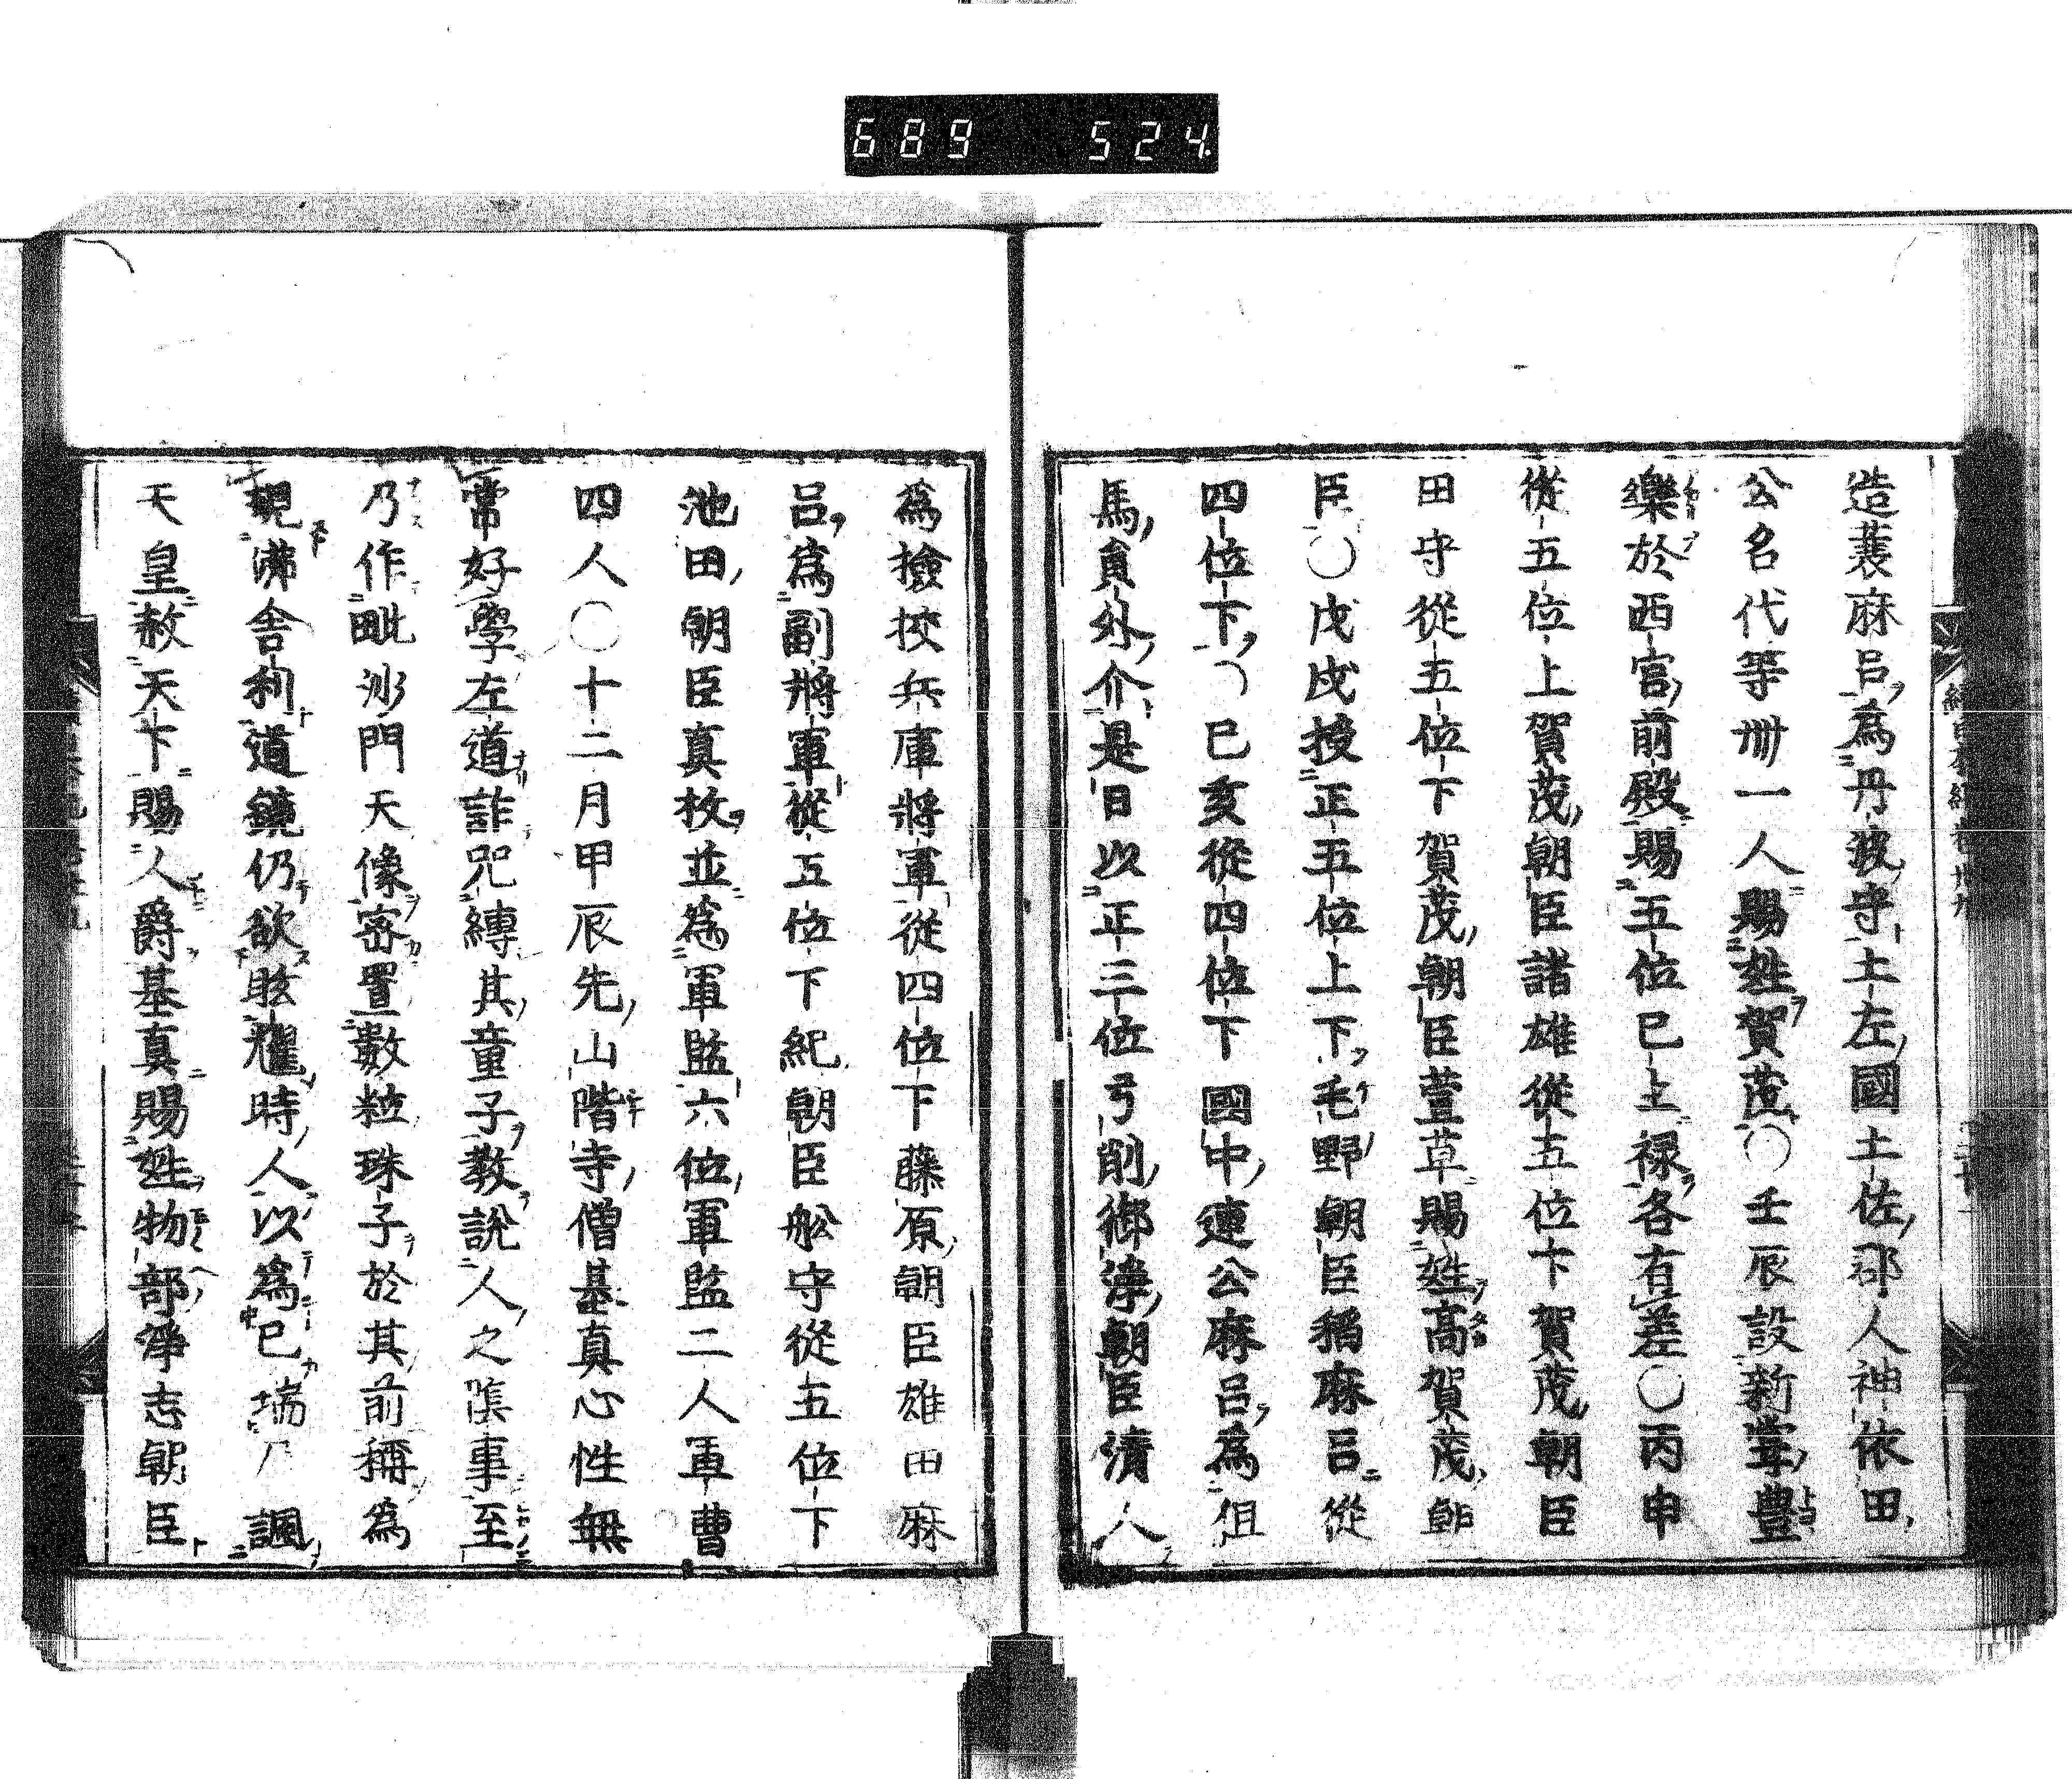 689 524
造蓑麻呂為丹波守土左國土佐郡人神依田
公名代等卌一人賜姓賀茂○壬辰設新甞豊
樂於西宮前殿賜五位已上禄各有差○丙申
従五位上賀茂朝臣諸雄従五位下賀茂朝臣
田守従五位下賀茂朝臣萱草賜姓高賀茂朝
臣○戊戌授正五位上下毛野朝臣稲麻呂従
四位下○已亥從四位下國中連公麻呂為但
馬貟外介是日以正三位弓削御浄朝臣清人
為撿挍兵庫将軍従四位下藤原朝臣雄田麻
呂為副将軍從五位下紀朝臣舩守従五位下
池田朝臣真枚並為軍監六位軍監二人軍曹
四人○十二月甲辰先山階寺僧基真心性無
常好學左道詐咒縛其童子教說人之事至
乃作毗沙門天像密置數粒珠子於其前稱為
現沸舎利道鏡仍欲眩耀時人以為已瑞諷
天皇赦天下賜人爵基真賜姓物部浄志朝臣